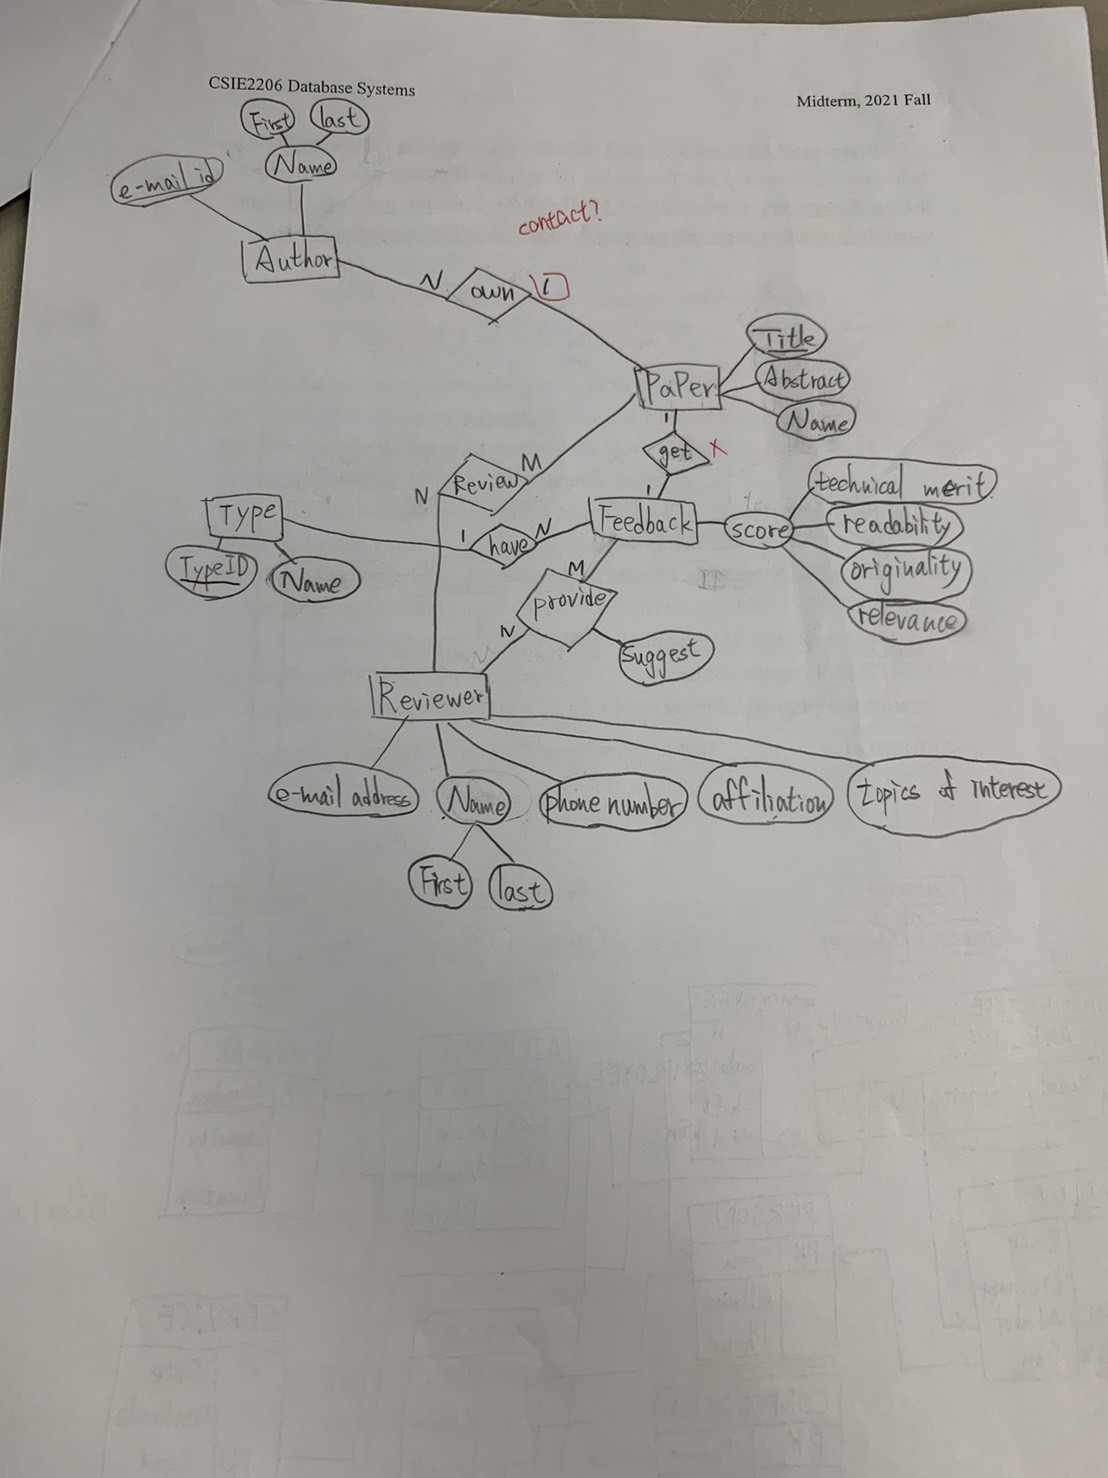 CSIE2206 Database Systems
Midterm, 2021 Fall
First
last
Name
e-mail id
Author
contact?
N
own
1
PaPer
Title
Abstract
Name
1
get
X
1
Review
M
N
Type
TypeID
Name
1
have
N
Feedback
score
technical merit
readability
originality
relevance
M
provide
N
suggest
Reviewer
e-mail address
Name
phone number
affiliation
topics of interest
First
last